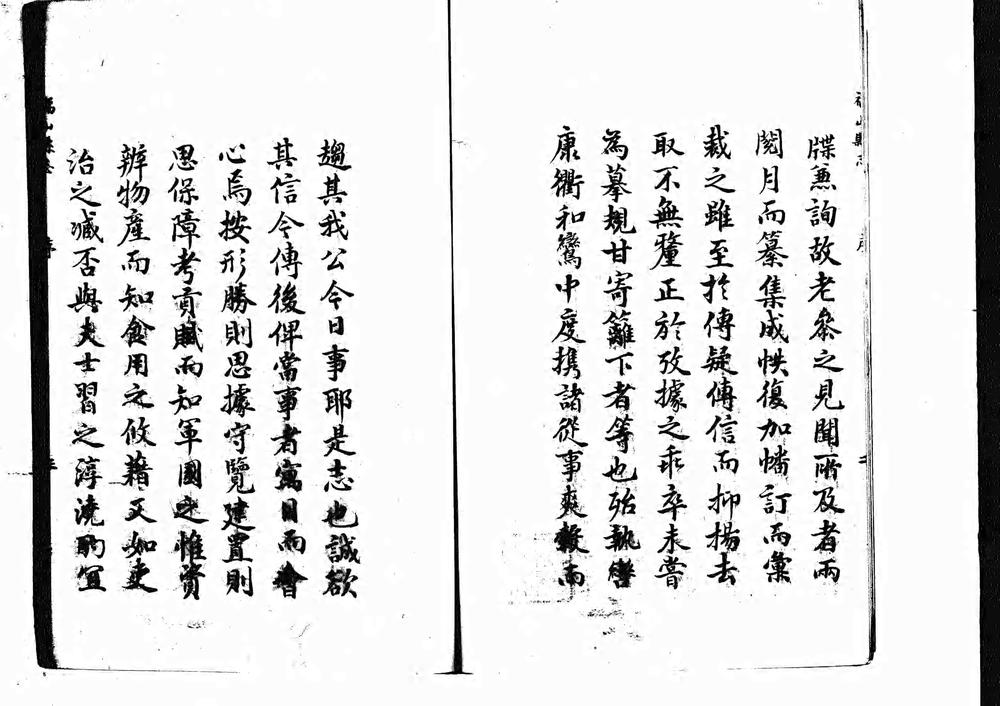 福山縣志 序 二
牒兼詢故老參之見聞所及者兩
閱月而纂集成帙復加幡訂而彙
裁之雖至於傳疑傳信而抑揚去
取不無釐正於攷據之乖卒未嘗
為摹規甘寄籬下者等也殆執轡
康衢和鸞中度携諸從事爽毂而
趨其我公今日事耶是志也誠欲
其信今傳後俾當事者寓目而會
心焉按形勝則思據守覽建置則
思保障考貢賦而知軍國之惟資
辨物產而知食用之攸藉又如吏
治之臧否與夫士習之淳澆昀宜
福山縣志 序 三